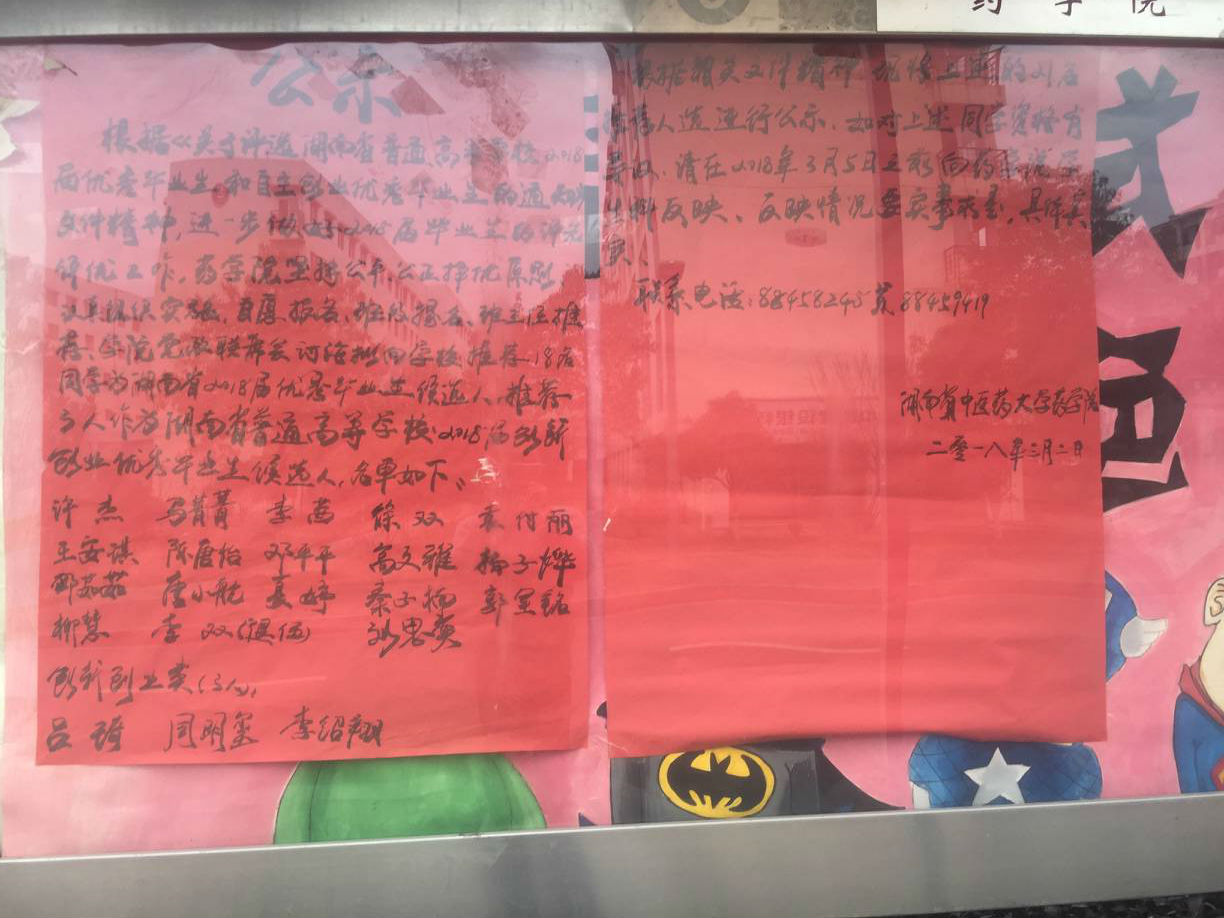 药学院
公示
根据《关于评选湖南省普通高等学校2018
届优秀毕业生和自主创业优秀毕业生的通知》
文件精神,进一步做好2018届毕业生的评先
评优工作,药学院坚持公平、公正择优原则,
认真组织实施,自愿报名、班级提名、班主任推
荐、学院党政联席会讨论拟向学校推荐18名
同学为湖南省2018届优秀毕业生候选人,推荐
3人作为湖南省普通高等学校2018届创新
创业优秀毕业生候选人,名单如下:
许杰 马菁菁 李 徐双 袁付丽
王安琪 陈唐怡 邓平平 高文雅 杨子烨
邵茹茹 唐小航 聂婷 秦子杨 郭星铭
柳慧 李双(退伍) 刘思奕
创新创业类(3人):
吕 周明玺 李绍翔
根据相关文件精神,现将上述的21名
推荐人选进行公示,如对上述同学资格有
异议,请在2018年3月5日之前向药学院学
生科反映、反映情况要实事求是,具体真
实。
联系电话:88458245或88459419
湖南省中医药大学药学院
二零一八年三月二日